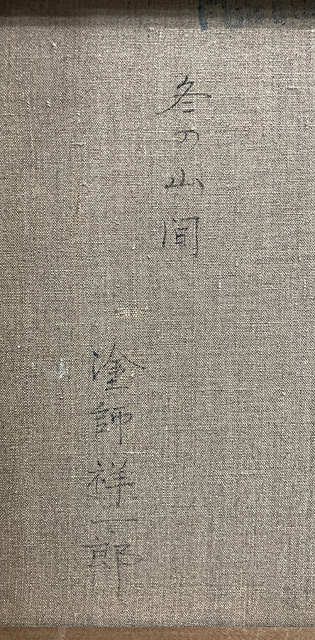 冬の山間
塗師祥一郎